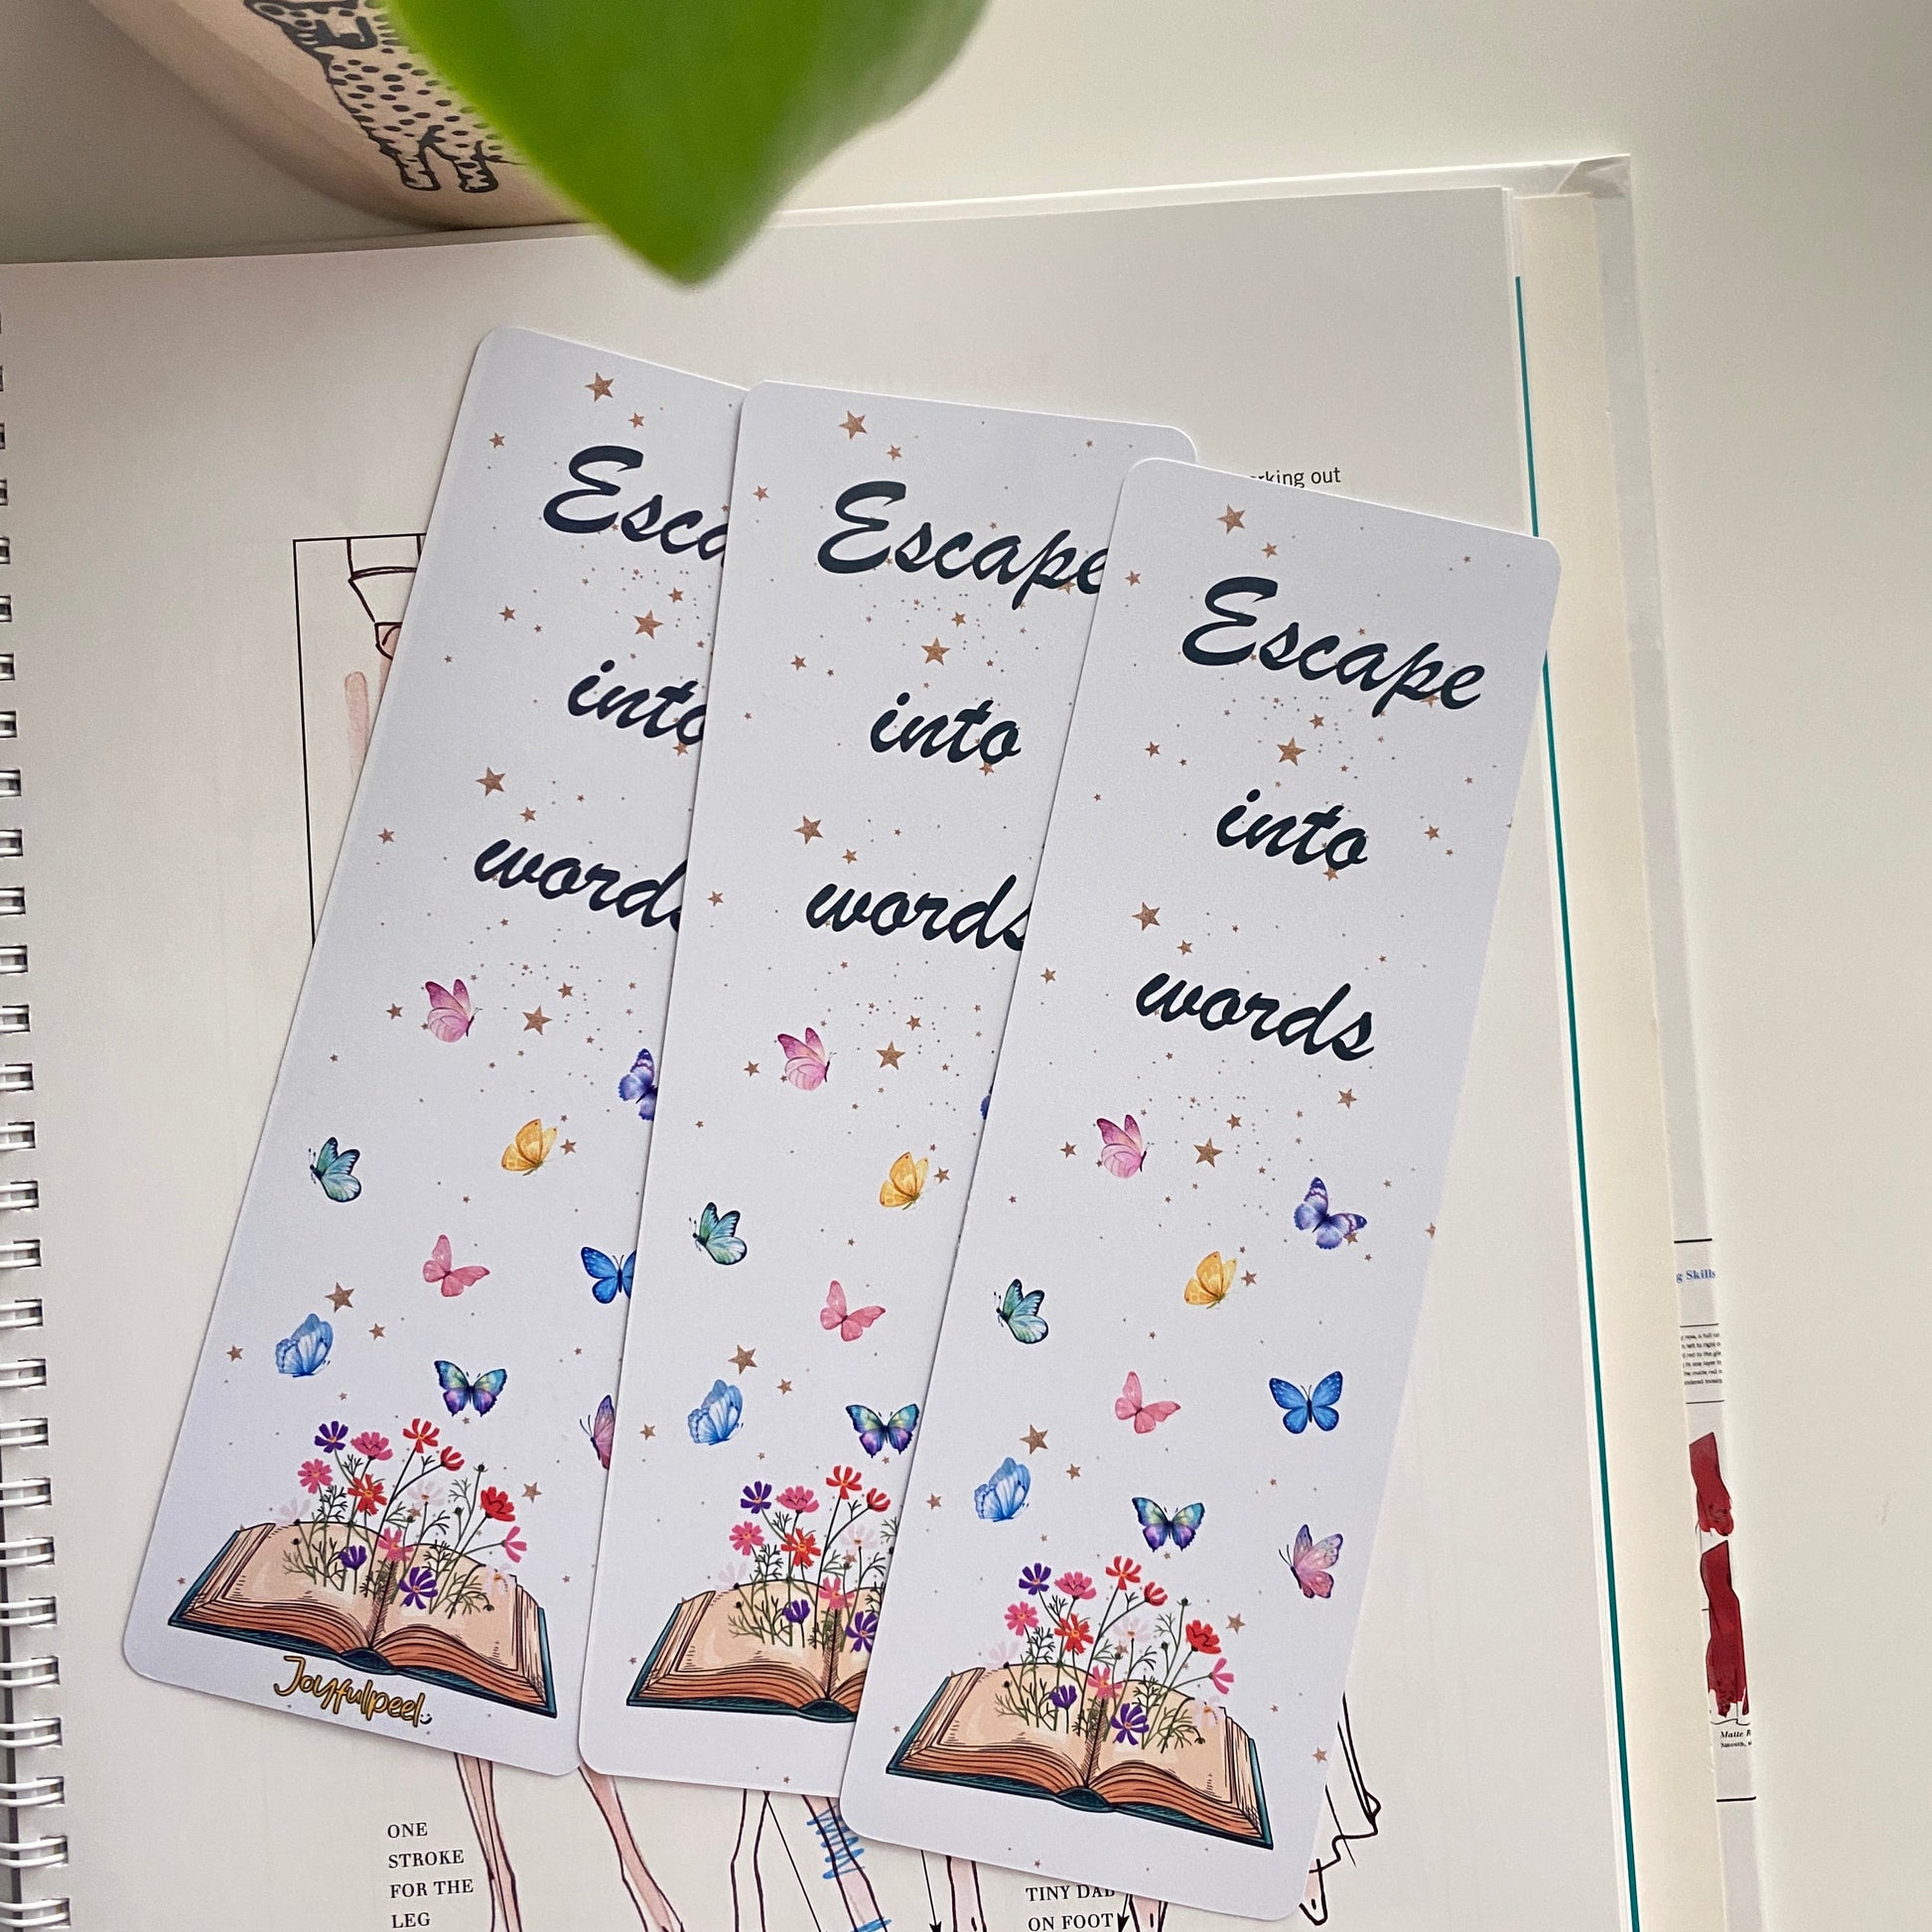 Esca
into
words
Joyfulpeel
Escape
into
words
Escape
into
words
rking out
g Skills
ONE
STROKE
FOR THE
LEG
TINY DAB
ON FOOT
Matte
Smooth,